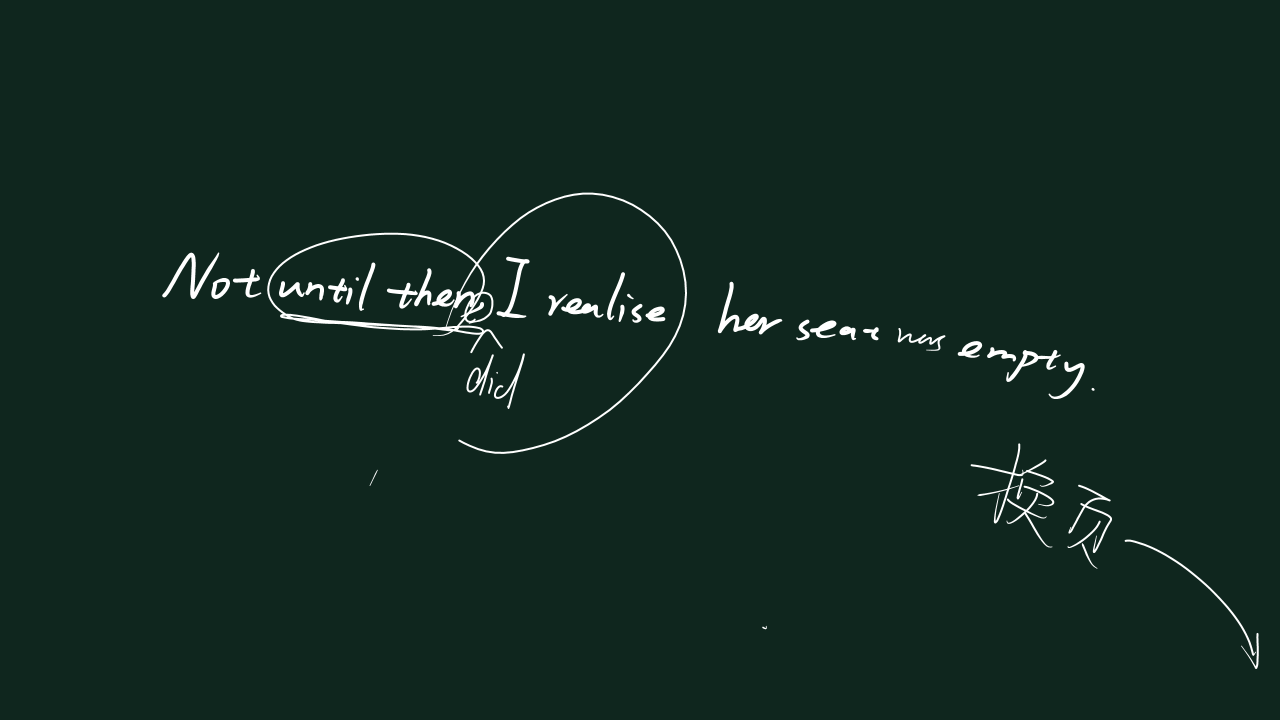 Not until then I realise her seat was empty.
did
换页